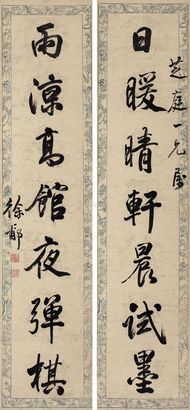 芝庭一兄属
日暖晴軒晨试墨
雨涼高館夜彈棋
徐郙